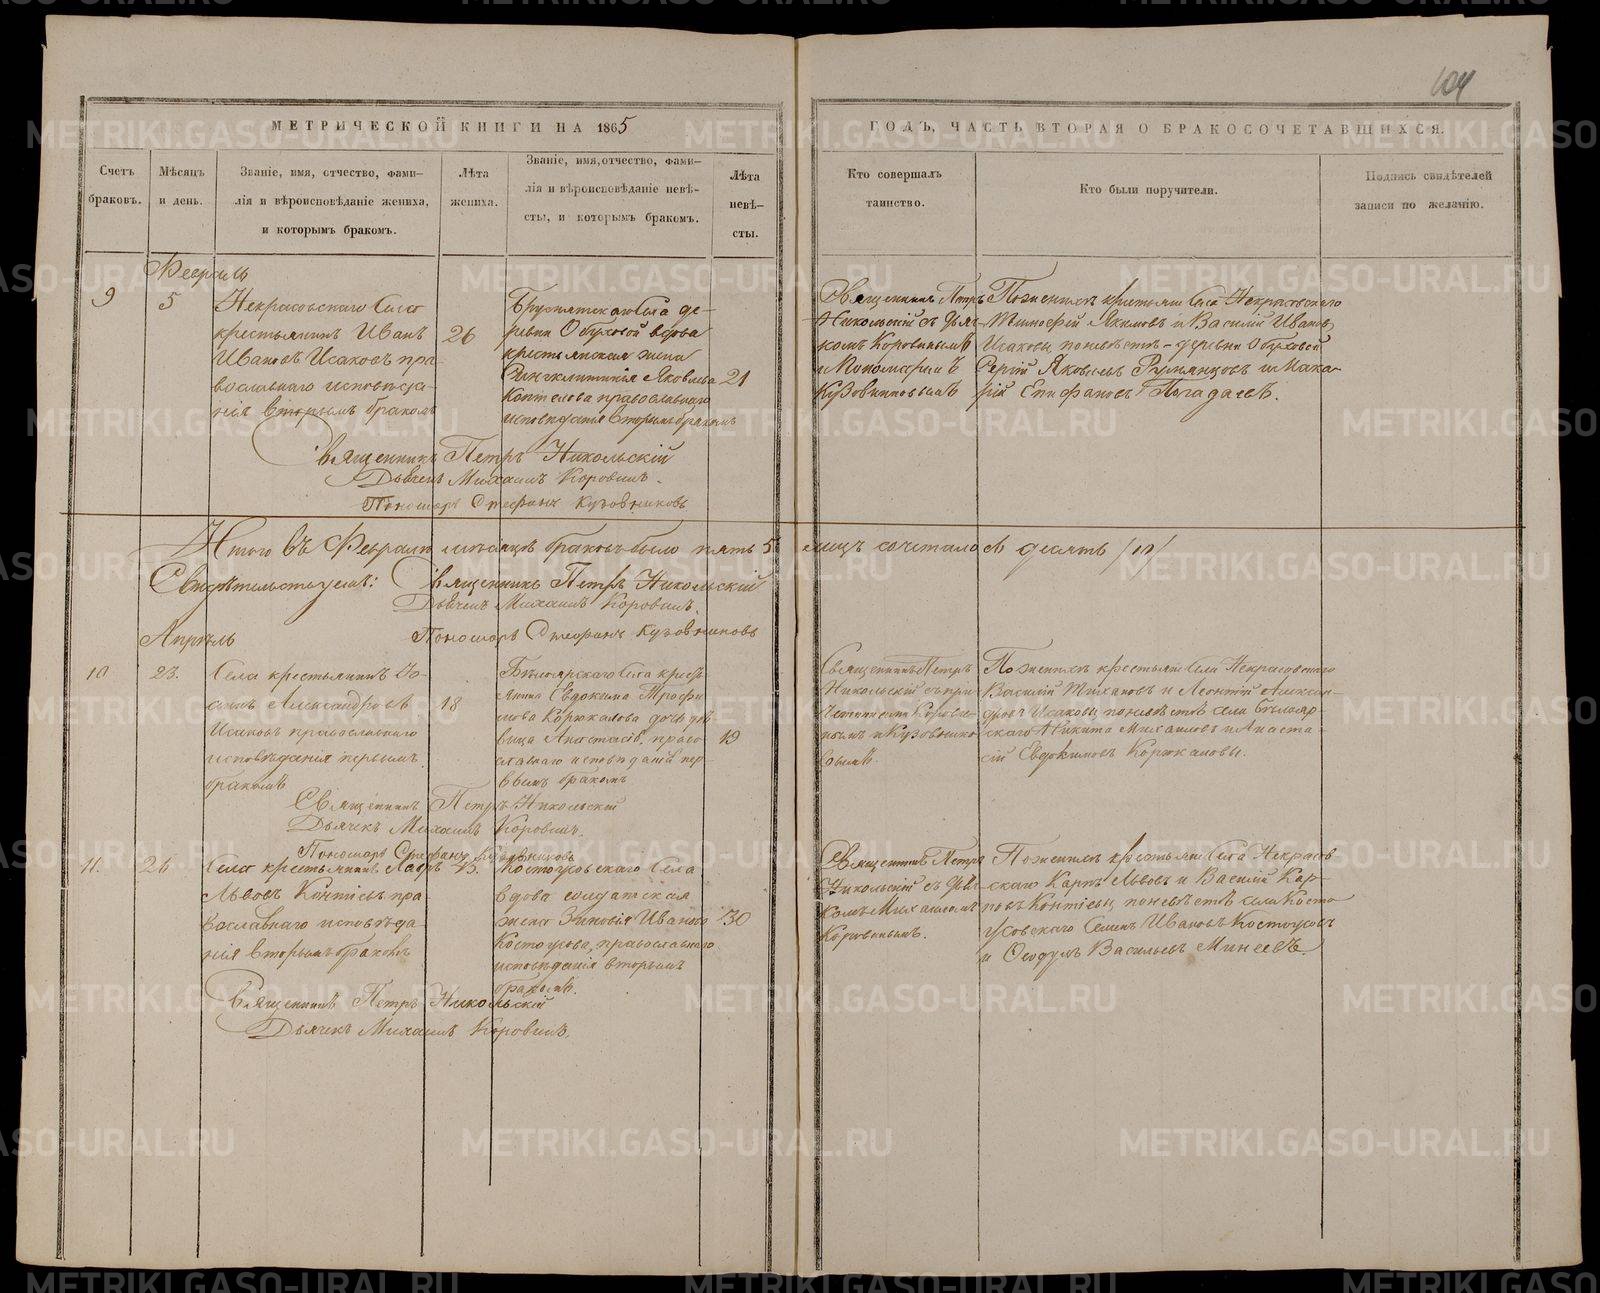 104
МЕТРИЧЕСКОЙ КНИГИ НА 1865
ГОДЪ, ЧАСТЬ ВТОРАЯ О БРАКОСОЧЕТАВШИХСЯ.
Счетъ
браковъ.
Мѣсяцъ
и день.
Званіе, имя, отчество, фами-
лія и вѣроисповѣданіе жениха,
и которымъ бракомъ.
Лѣта
жениха.
Званіе, имя, отчество, фами-
лія и вѣроисповѣданіе невѣ-
сты, и которымъ бракомъ.
Лѣта
невѣ-
сты.
Кто совершалъ
таинство.
Кто были поручители.
Подпись свидѣтелей
записи по желанію.
Февраль
9
5
Некрасовскаго Села
крестьянинъ Иванъ
Ивановъ Исаковъ пра-
вославнаго исповѣда-
нія вторымъ бракомъ
26
Села де-
ревни Обуховой вдова
крестьянская жена
Синклитикія Яковлева
Коптелова православнаго
исповѣданія вторымъ бракомъ
21
Священникъ Петръ
Никольскій съ Дья-
комъ Коровинымъ
и Пономаремъ
Кузовниковымъ
По женихѣ крестьяне Села Некрасовскаго
Тимофей Якимовъ и Василій Ивановъ
Исаковы, по невѣстѣ - деревни Обуховой
Сергій Яковлевъ Румянцовъ и Мака-
рій Епифановъ Погадаевъ.
Священникъ Петръ Никольскій
Дьячекъ Михаилъ Коровинъ.
Пономарь Стефанъ Кузовниковъ
Итого въ Февралѣ мѣсяцѣ браковъ было пять 5 лицъ сочеталось десять /10/
Свидѣтельствуемъ: Священникъ Петръ Никольскій
Дьячекъ Михаилъ Коровинъ.
Пономарь Стефанъ Кузовниковъ
Апрѣль
10
23.
Села крестьянинъ Іо-
аннъ Александровъ
Исаковъ православнаго
исповѣданія первымъ
бракомъ
18
Бѣлоярскаго Села крест
янина Евдокима Трофи
мова Корюкалова дочь дѣ
вица Анастасія, право
славнаго исповѣданія пер
вымъ бракомъ
19
Священникъ Петръ
Никольскій съ при-
четниками Корови-
нымъ и Кузовнико
вымъ.
По женихѣ крестьяне Села Некрасовскаго
Василій Тихановъ и Леонтій Алексан-
дровъ Исаковы, по невѣстѣ села Бѣлояр-
скаго Никита Михаиловъ и Анаста-
сій Евдокимовъ Корюкаловы.
Священникъ Петръ Никольскій
Дьячекъ Михаилъ Коровинъ.
Пономарь Стефанъ Кузовниковъ
11.
26
Села крестьянинъ Лавръ
Львовъ Контіевъ пра
вославнаго исповѣда
нія вторымъ бракомъ
Костоусовскаго Села
вдова солдатская
жена Зиновія Иванова
Костоусова, православнаго
исповѣданія вторымъ
бракомъ.
30
Священникъ Петръ
Никольскій съ Дья-
комъ Михаиломъ
Коровинымъ.
По женихѣ крестьяне Села Некрасов
скаго Карпъ Львовъ и Василій Кар-
повъ Контіевы, по невѣстѣ села Косто
усовскаго Семенъ Ивановъ Костоусовъ
и Ѳеодулъ Васильевъ Минеевъ.
Священникъ Петръ Никольскій
Дьячекъ Михаилъ Коровинъ.
METRIKI.GASO-URAL.RU